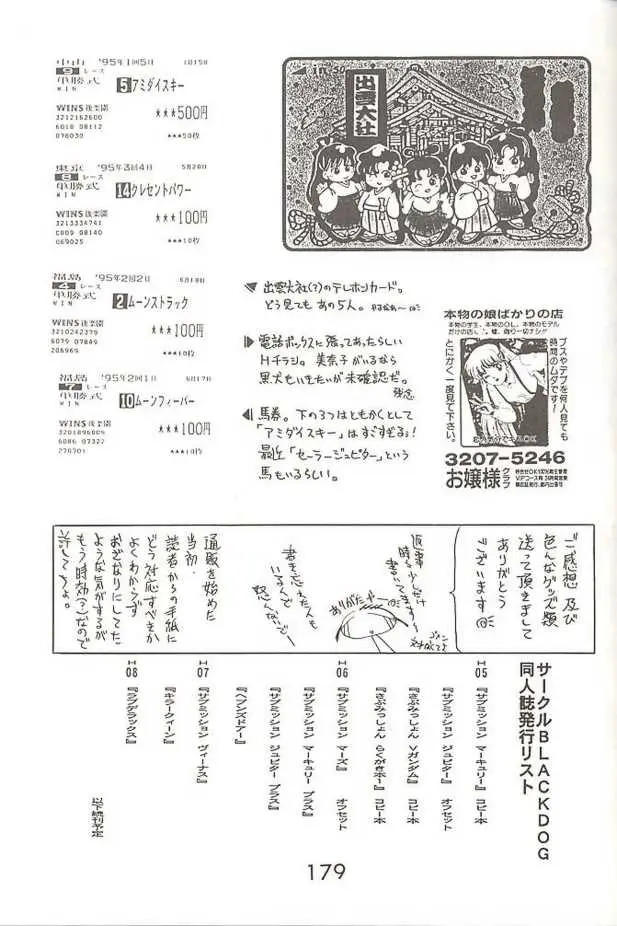 中山 '95年1回5日 1月15日
9 レース
単勝式 5 アミダイスキー
WIN
WINS後楽園 ★★★500円
3212162600
6010 08112
078030 ★★★50枚
東京 '95年3回4日 5月28日
8 レース
単勝式 14 クレセントパワー
WIN
WINS後楽園 ★★★100円
3213334741
C009 08140
069025 ★★★10枚
福島 '95年2回2日 6月18日
4 レース
単勝式 2 ムーンストラック
WIN
WINS後楽園 ★★★100円
3210242379
6079 07849
206969 ★★★10枚
福島 '95年2回1日 6月17日
7 レース
単勝式 10 ムーンフィーバー
WIN
WINS後楽園 ★★★100円
3201896009
6086 07322
270701 ★★★10枚
50
出雲大社
出雲大社(?)のテレホンカード。
どう見てもあの5人。
電話ボックスに張ってあったらしい
Hチラシ。美奈子がいるなら
黒犬もいきたいが未確認だ。
残念
馬券。下の3つはともかくとして
「アミダイスキー」はすごすぎる!
最近「セーラージュピター」という
馬もいるらしい。
本物の娘ばかりの店
本物の学生、本物のOL、本物のモデル
ブスやデブを何人見ても
時間のムダです!
とにかく一度見て下さい。
3207-5246
お嬢様クラブ
ご感想 及び
色んなグッズ類
送って頂きまして
ありがとう
ございます
返事
時々少しだけ
書いてますが〜
ゴメン
ありがたや
書き忘れた人も
いるんで
怒んないで〜
通販を始めた
当初、
読者からの手紙に
どう対応すべきか
よくわからず
おざなりにしてた
ような気がするが
もう時効(?)なので
許してちょ。
サークルBLACKDOG
同人誌発行リスト
H05
『サブミッション マーキュリー』 コピー本
『サブミッション ジュピター』 オフセット
『さぶみっしょん Vガンダム』 コピー本
『さぶみっしょん らくがきボー』 コピー本
H06
『サブミッション マーズ』 オフセット
『サブミッション マーキュリー プラス』
『サブミッション ジュピター プラス』
『ヘブンズドアー』
H07
『サブミッション ヴィーナス』
『キラークィーン』
H08
『ラブデラックス』
以下続刊予定
179